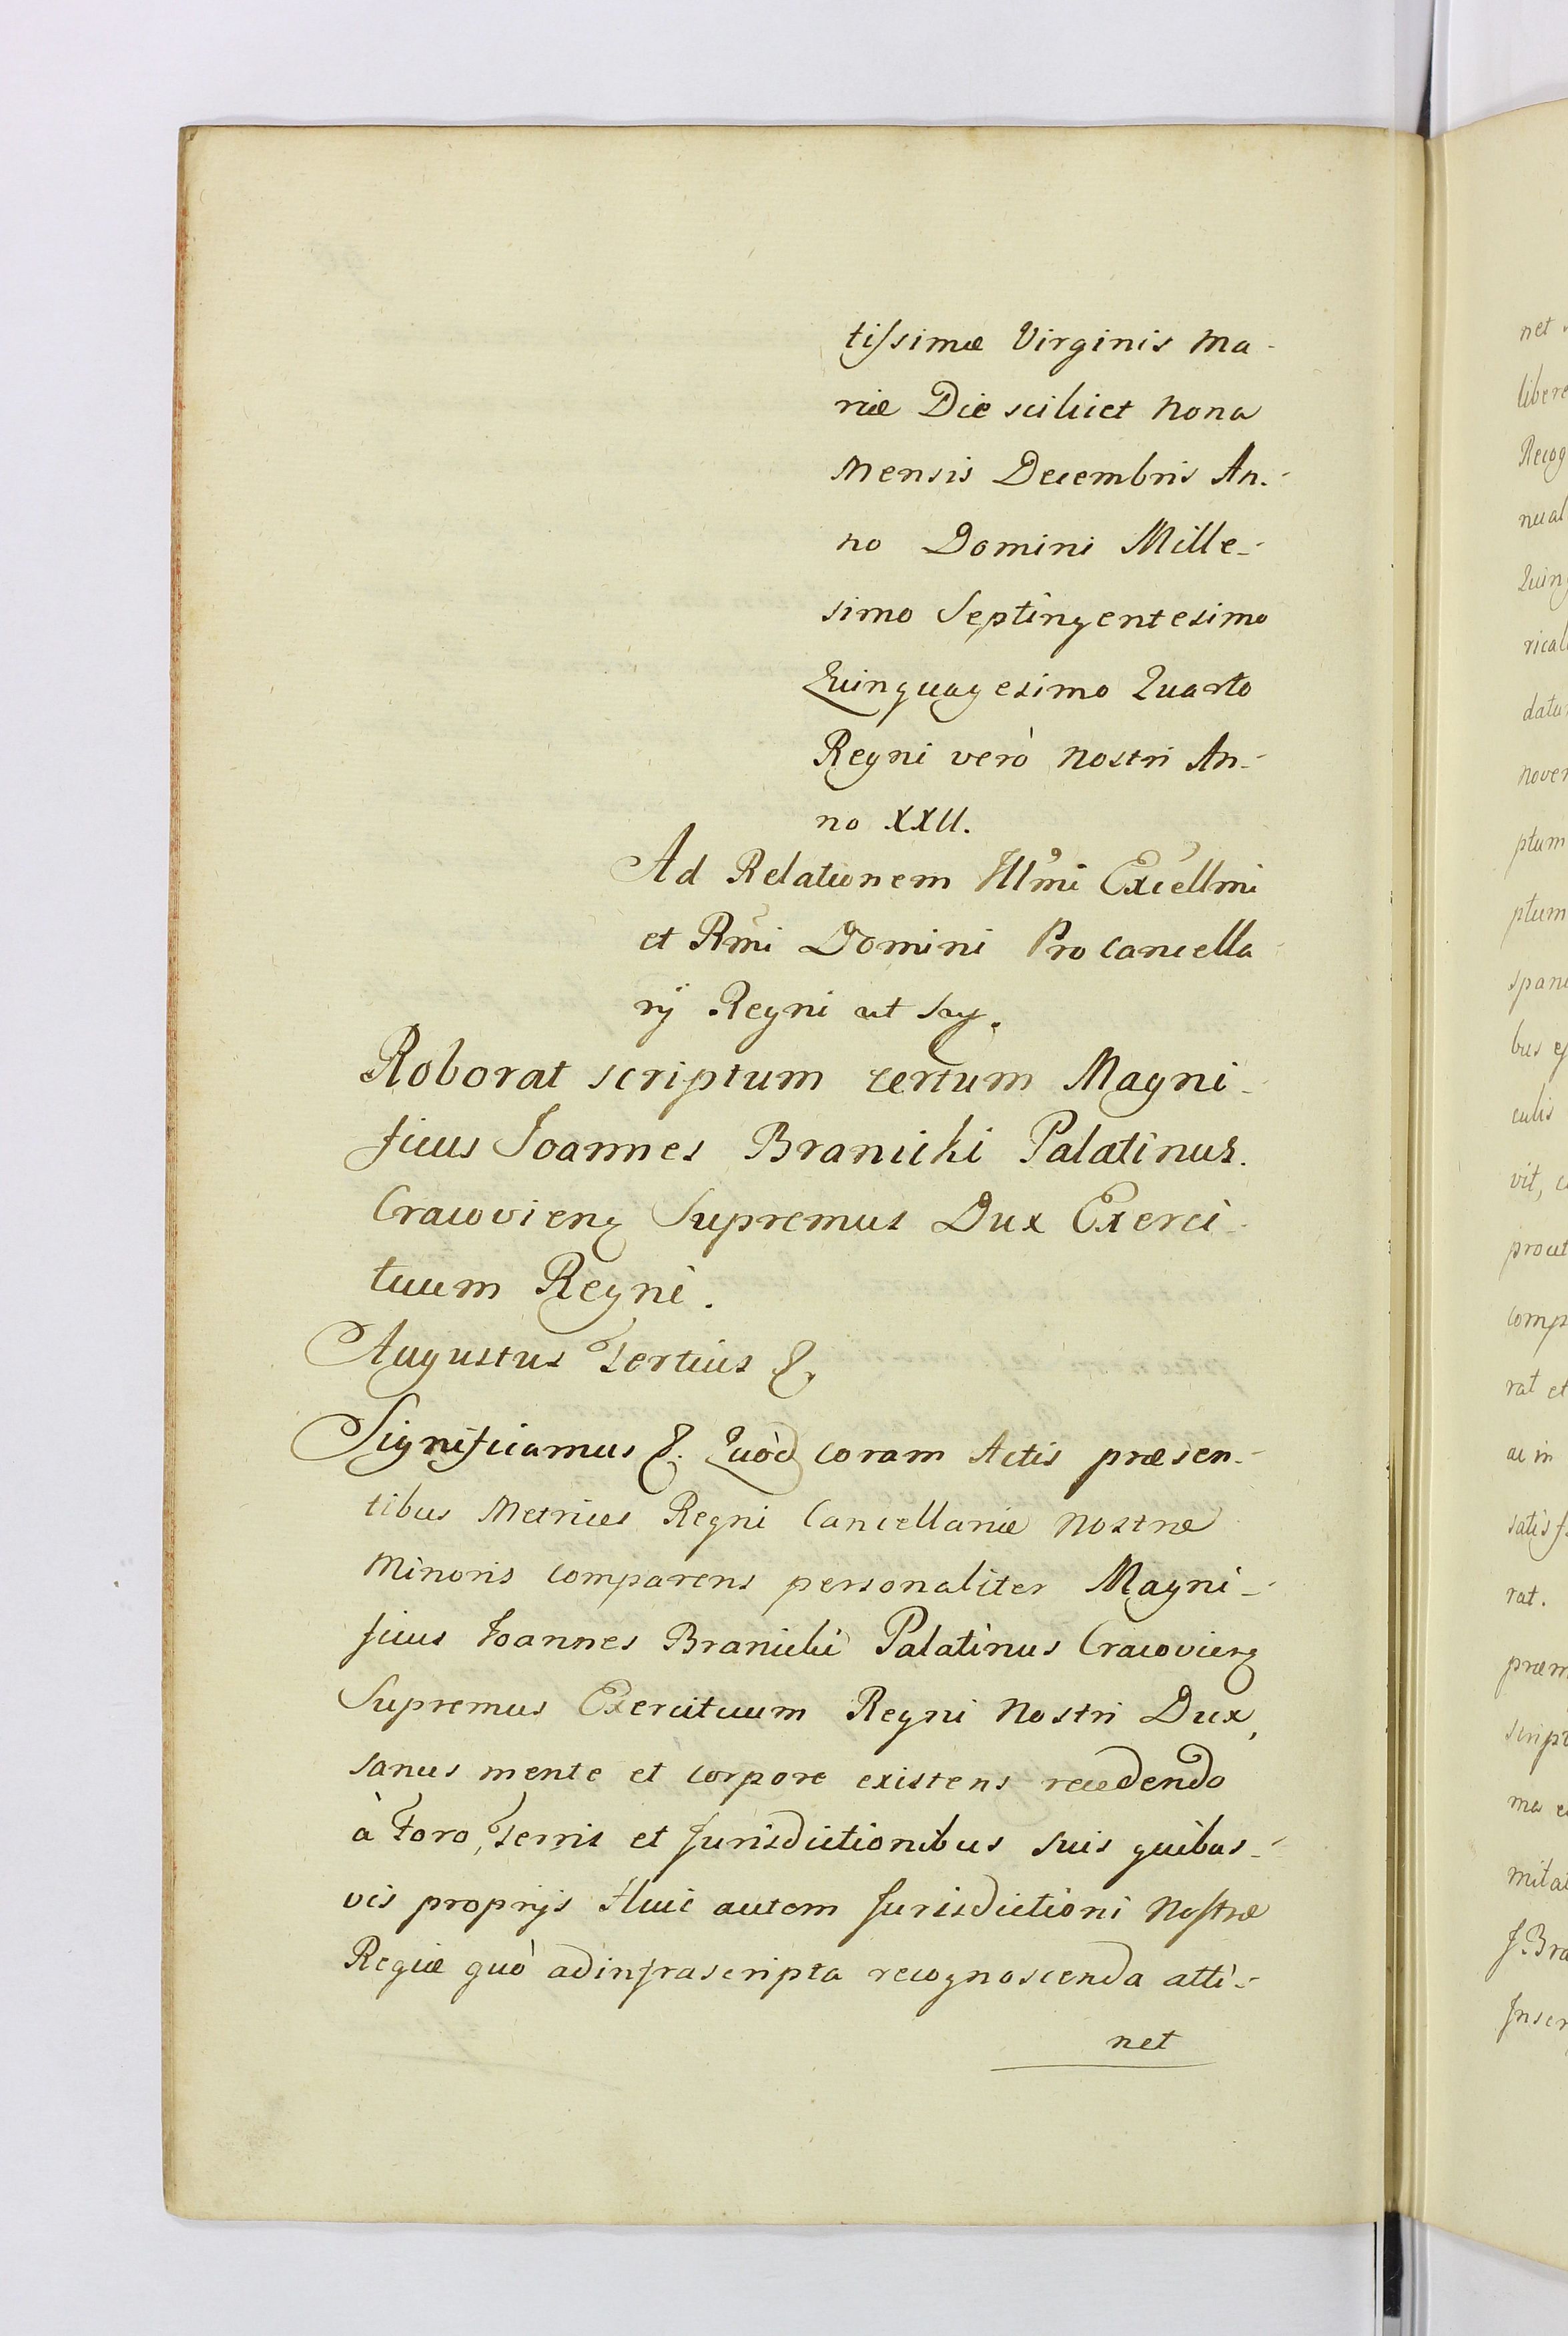 tissimæ Virginis Ma-
riæ Die scilicet Nona
Mensis Decembris An-
no Domini Mille-
simo Septingentesimo
Quinquagesimo Quarto
Regni verò Nostri An-
no XXII.
Ad Relationem Illmi Excellmi
et Rmi Domini Procancella
rij Regni ut sup.
Roborat scriptum certum Magni-
ficus Joannes Branicki Palatinus
Cracovien Supremus Dux Exerci-
tuum Regni.
Augustus Tertius &.
Significamus &. Quòd coram Actis præsen-
tibus Metrices Regni Cancellariæ Nostræ
Minoris comparens personaliter Magni-
ficus Joannes Branicki Palatinus Cracovien
Supremus Exercituum Regni Nostri Dux,
sanus mente et corpore existens recedendo
à Foro, Terris et Jurisdictionibus suis quibus-
vis proprijs Huic autem Jurisdictioni Nostræ
Regiæ quò ad infrascripta recognoscenda atti-
net
net
libere
Recog
nual
Quinq
rical
datu
nover
ptum
ptum
span
bus
culis
vit,
prout
comp
rat et
ac in
satisf
rat.
præm
script
ma
mita
J. Bra
Inser